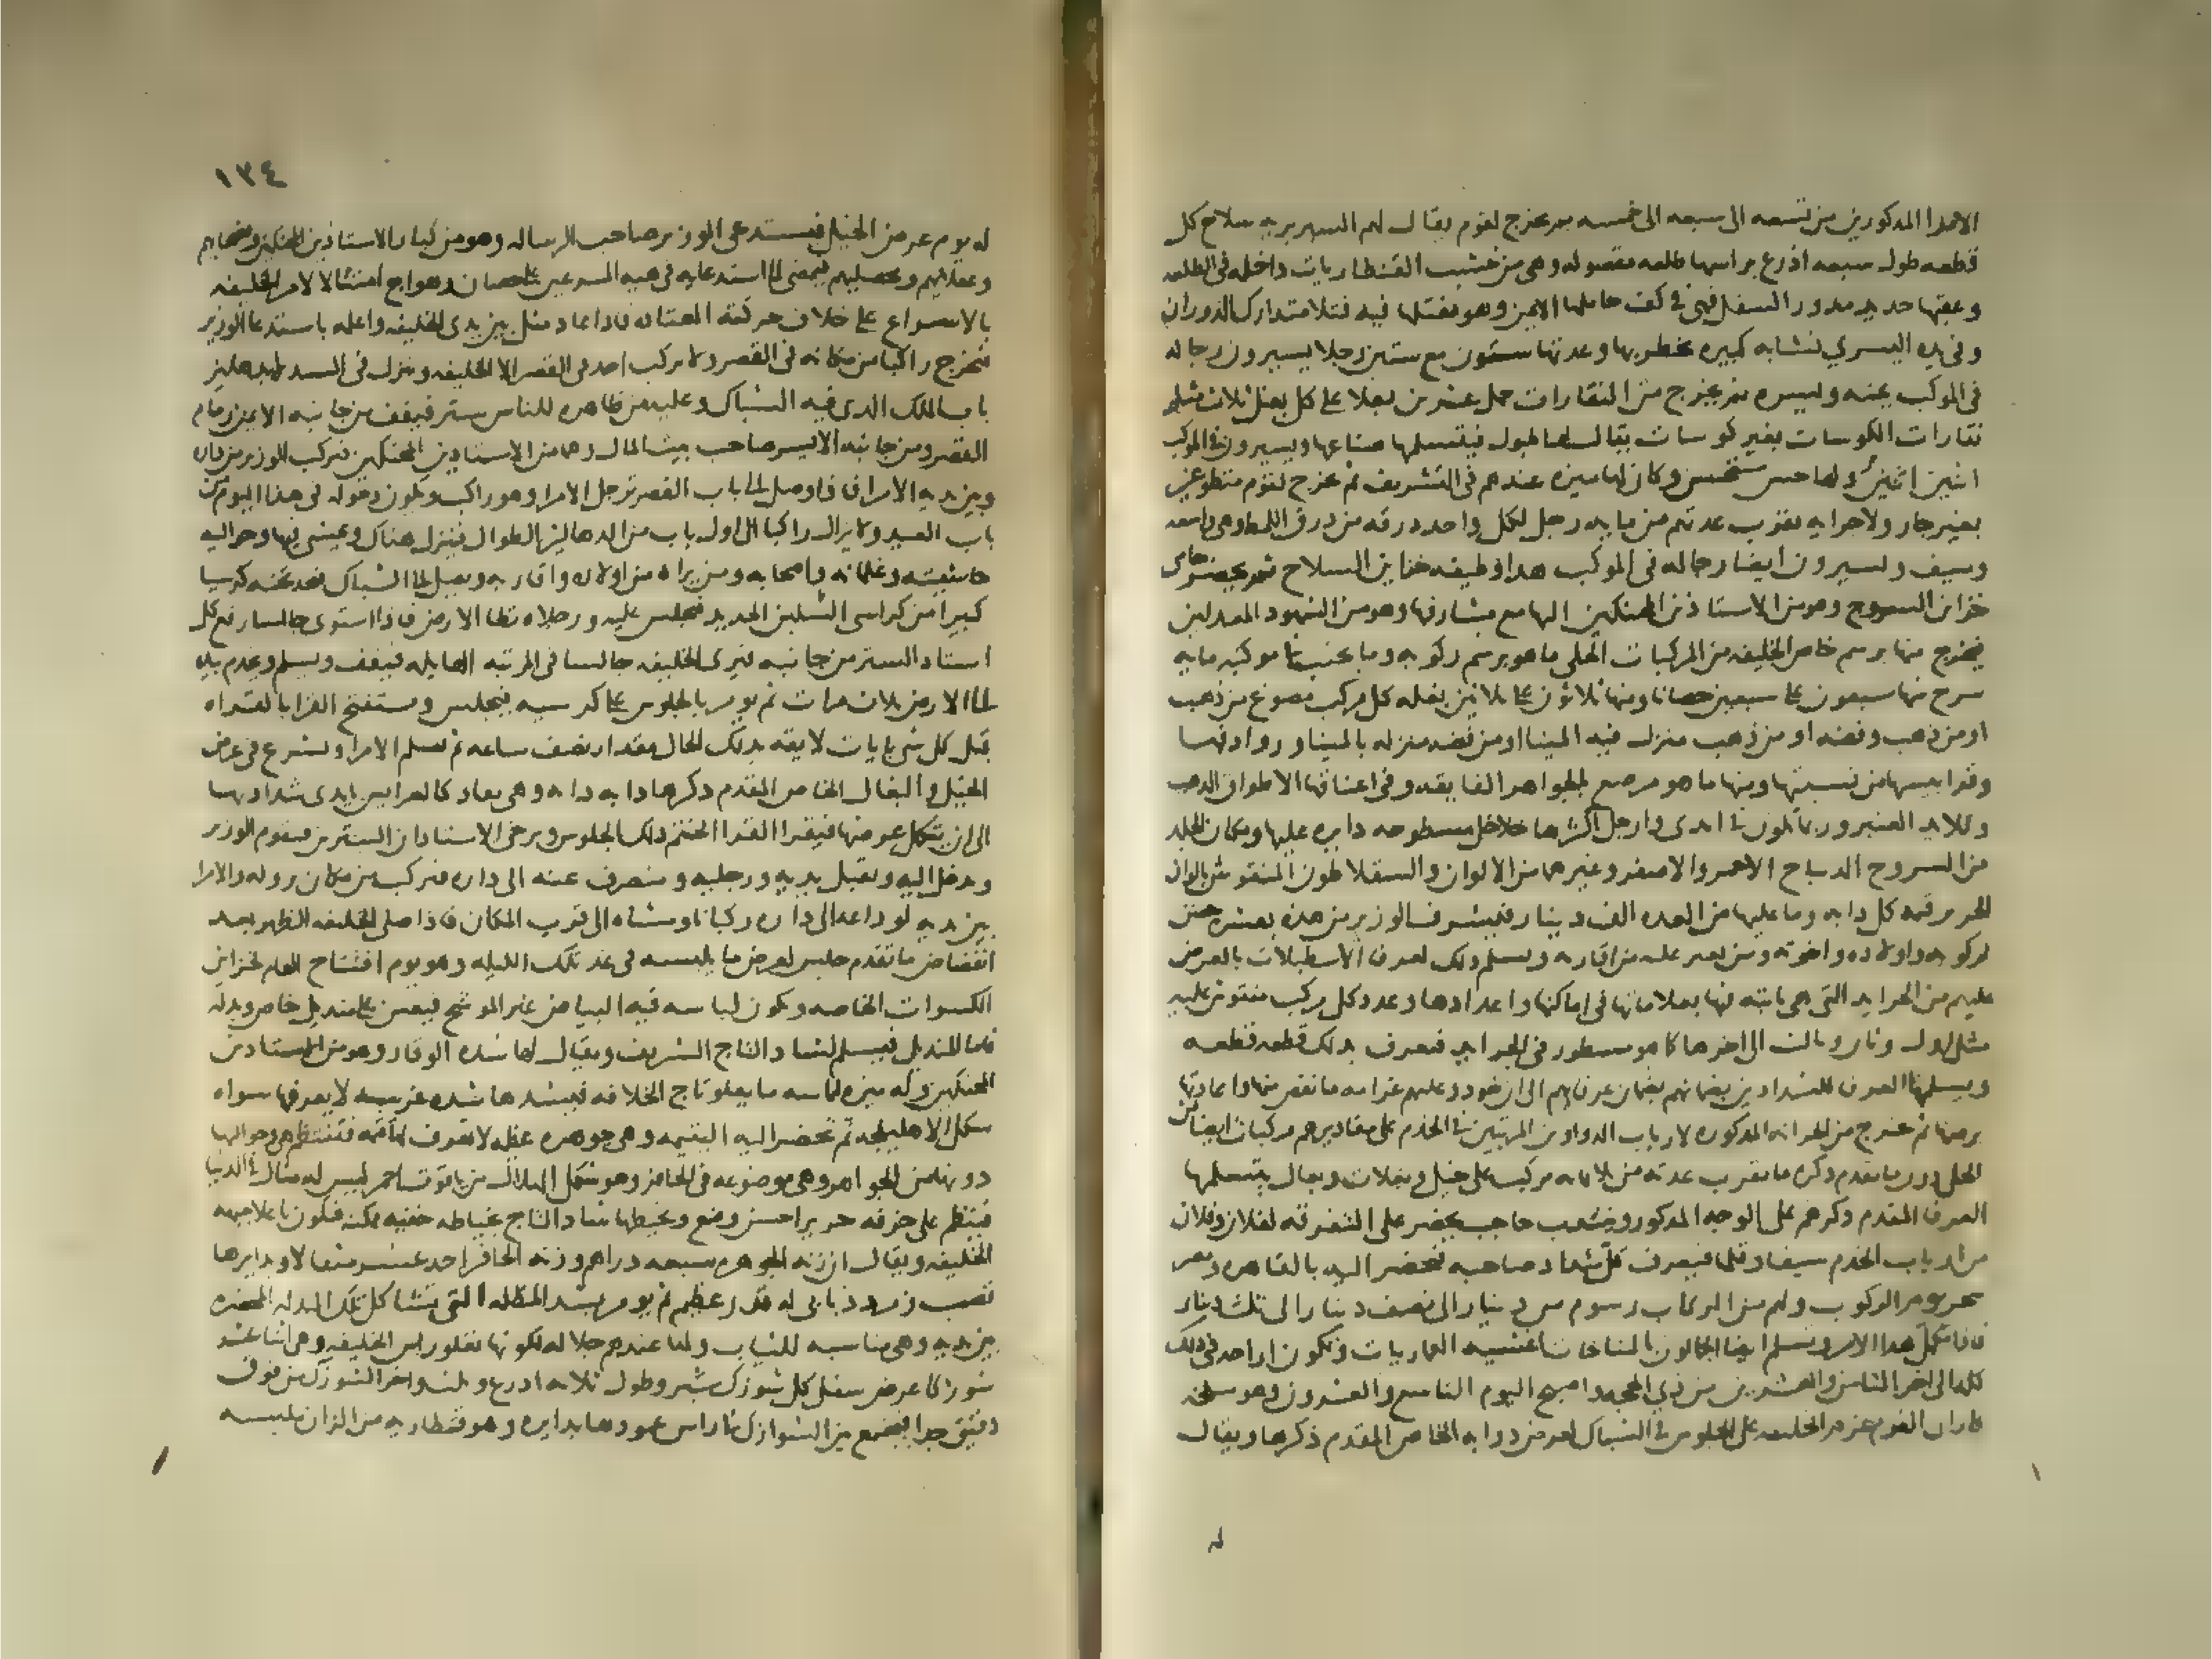 الامرا المذكورين من تسعه الى سبعه الى خمسه ثم يخرج لقوم يقال لهم السريريه سلاح كل
قطعه طول سبعه اذرع براسها طلعه مصقوله وهى من خشب القنطاريات داخله فى الطلعه
وعقبها حديد مدور السفل فهى فى كف حاملها الايمن وهو يفتلها فيه فتلا متدارك الدوران
وفى يده اليسرى نشابه كبيره يخطر بها وعدتها ستون مع ستين رجلا يسيرون رجاله
فى الموكب يمنه ويسره ثم يخرج من النقارات حمل عشرين بغلا على كل بغل ثلاث مثل
نقارات الكوسات بغير كوسات يقال لها طبول فيتسلمها صناعها ويسيرون فى الموكب
اثنين اثنين ولها حس مستحسن وكان لها ميزه عندهم فى التشريف ثم يخرج لقوم متطوعين
بغير جار ولا جرايه تقرب عدتهم من مايه رجل لكل واحد درقه من درق اللمط وهى واسعه
وسيف ويسيرون ايضا رجاله فى الموكب هذا وظيفه خزاين السلاح ثم يحضر حامى
خزاين السروج وهو من الاستاذين المحنكين اليها مع مشارفها وهو من الشهود المعدلين
فيخرج منها برسم خاص الخليفه من المركبات الحلى ما هو برسم ركوبه وما يجنب فى موكبه مايه
سرج منها سبعون على سبعين حصانا ومنها ثلاثون على ثلاثين بغله كل مركب مصوغ من ذهب
او من ذهب وفضه او من ذهب منزل فيه المينا او من فضه منزله بالمينا وروادفها
وقرابيسها من نسبتها ومنها ما هو مرصع بالجواهر الفايقه وفى اعناقها الاطواق الذهب
وقلايد العنبر وربما يكون فى ايدى وارجل اكثرها خلاخل مسطوحه دايره عليها ومكان الجلد
من السروج الديباج الاحمر والاصفر وغيرهما من الالوان والسقلاطون المنقوش بالوان
الحرير قيمه كل دابه وما عليها من العده الف دينار فيشرف الوزير من هذه بعشره حصن
لركوبه واولاده واخوته ومن يعز عليه من اقاربه ويسلم ذلك لعرفا الاسطبلات بالعرض
عليهم من الجرايد التى هى ثابته فيها بعلاماتها فى اماكنها واعدادها وعدد كل مركب منقوش عليه
مثل اول وثان وثالث الى اخرها كما هو مسطور فى الجرايد فيعرف بذلك قطعه قطعه
ويسلمها العرفا للشدادين بضمانهم بضمان عرفايهم الى ان تعود وعليهم غرامه ما نقص منها واعادتها
برمتها ثم يخرج من الخزانه المذكوره لارباب الدواوين المرتبين فى الخدم على مقاديرهم مركبات ايضا من
الحلى دون ما تقدم ذكره ما تقرب عدته من ثلاثمايه مركب على خيل وبغلات وبغال يتسلمها
العرفا المقدم ذكرهم على الوجه المذكور وينتدب حاجب يحضر على التفرقه لفلان وفلان
من ارباب الخدم سيفا وقلما فيعرف كل شداد صاحبه فيحضر اليه بالقاهره ومصر
سحر يوم الركوب ولهم من الركاب رسوم من دينار الى نصف دينار الى ثلث دينار
فاذا تكمل هذا الامر وتسلم ايضا الجمالون بالمناخات اغشيه العماريات وتكون اراحه فى ذلك
كله الى اخر الثامن والعشرين من ذى الحجه واصبح اليوم التاسع والعشرون وهو سلخه
على راى القوم عزم الخليفه على الجلوس فى الشباك لعرض دوابه الخاص المقدم ذكرها ويقال
له
١٣٤
له يوم عرض الخيل فيستدعى الوزير صاحب الرساله وهو من كبار الاستاذين المحنكين وفصحايهم
وعقلايهم ومحصليهم فيمضى الى استدعايه فى هيه المسرعين على حصان دهواج امتثالا لامر الخليفه
بالاسراع على خلاف حركته المعتاده فاذا عاد مثل بين يدى الخليفه واعلمه باستدعا الوزير
فيخرج راكبا من مكانه فى القصر ولا يركب احد فى القصر الا الخليفه وينزل فى السدلا بدهليز
باب الملك الذى فيه الشباك وعليه من ظاهره للناس ستر فيقف من جانبه الايمن زمام
القصر ومن جانبه الايسر صاحب بيت المال وهما من الاستاذين المحنكين فيركب الوزير من داره
وبين يديه الامرا فاذا وصل الى باب القصر ترجل الامرا وهو راكب ويكون دخوله فى هذا اليوم من
باب العيد ولا يزال راكبا الى اول باب من الدهاليز الطوال فينزل هناك ويمشى فيها وحواليه
حاشيته وغلمانه واصحابه ومن يراه من اولاده واقاربه ويصل الى الشباك فيجد تحته كرسيا
كبيرا من كراسى الشلبن الجديد فيجلس عليه ورجلاه تطا الارض فاذا استوى جالسا رفع كل
استاد الستر من جانبه فيرى الخليفه جالسا فى المرتبه الهايله فيقف ويسلم ويخدم بيده
الى الارض ثلاث مرات ثم يومر بالجلوس على كرسيه فيجلس ويستفتح القرا بالقراه
قبل كل شى بايات لايقه بذلك الحال مقدار نصف ساعه ثم يسلم الامرا ويشرع فى عرض
الخيل والبغال الخاص المقدم ذكرها دابه دابه وهى تهاد كالعرايس بايدى شداديها
الى ان يتكمل عرضها فيقرا القرا لختم ذلك الجلوس ويرخى الاستادان الستر فيقوم الوزير
ويدخل اليه ويقبل يديه ورجليه وينصرف عنه الى داره فيركب من مكان نزوله والامرا
بين يديه لوداعه الى داره ركبانا ومشاه الى قرب المكان فاذا صلى الخليفه الظهر بعد
انقضاض ما تقدم جلس لعرض ما يلبسه فى غد تلك الليله وهو يوم افتتاح العام بخزاين
الكسوات الخاصه ويكون لباسه فيه البياض غير الموشح فيعين على منديل خاص وبدله
فاما المنديل فيسلم لشاد التاج الشريف ويقال لها شده الوقار وهو من الاستادين
المحنكين وله ميزه لمماسه ما يعلو تاج الخلافه فيشدها شده غريبه لا يعرفها سواه
شكل الاهليلجه ثم تحضر اليه اليتيمه وهى جوهره عظيمه لا يعرف لها قيمه فتنتظم هى وحواليها
دونها من الجواهر وهى موضوعه فى الحافر وهو شكل الهلال من ياقوت احمر ليس له مثال فى الدنيا
فينتظم على خرقه حرير احسن وضع ويخيطها شاد التاج بخياطه خفيه ممكنه فتكون باعلا جبهه
الخليفه ويقال ان زنه الجوهره سبعه دراهم وزنه الحافر احد عشر مثقالا وبدايرها
قصب زمرد ذبابى له قدر عظيم ثم يومر بشد المظله التى تتشاكل تلك البدله المحضره
بين يديه وهى مناسبه للثياب ولها عندهم جلاله لكونها تعلو راس الخليفه وهى اثنا عشر
شوزكا عرض سفل كل شوزك شبر وطوله ثلاثه اذرع وثلث واخر الشوزك من فوق
دقيق جدا فيجمع بين الشوازك فى راس عمودها بدايره وهو قنطاريه من الزان ملبسه